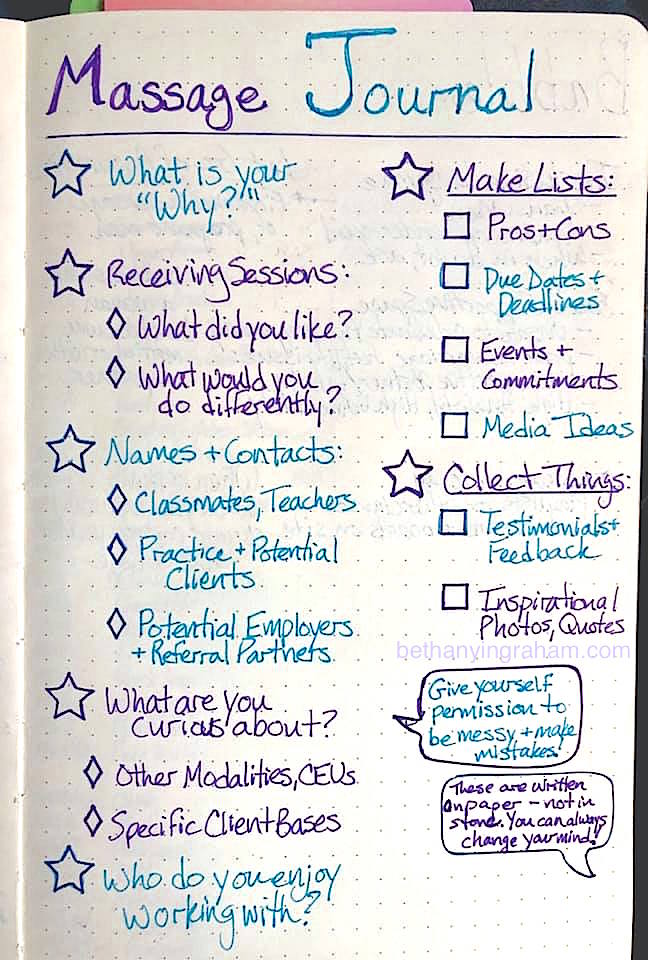 Massage Journal
What is your
"Why?"
Receiving Sessions:
What did you like?
What would you
do differently?
Names + Contacts:
Classmates, Teachers
Practice + Potential
Clients
Potential Employers
+ Referral Partners
What are you
curious about?
Other Modalities, CEUs
Specific Client Bases
Who do you enjoy
working with?
Make Lists:
Pros + Cons
Due Dates +
Deadlines
Events +
Commitments
Media Ideas
Collect Things:
Testimonials +
Feedback
Inspirational
Photos, Quotes
bethanyingraham.com
Give yourself
permission to
be messy + make
mistakes!
These are written
on paper - not in
stone. You can always
change your mind!